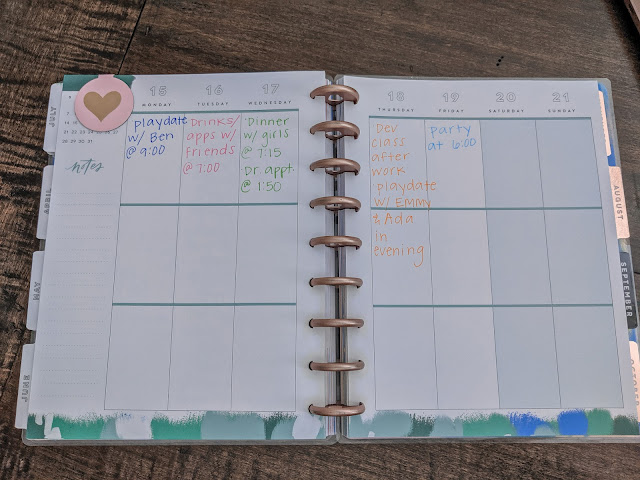 JULY
APRIL
MAY
JUNE
notes
15
MONDAY
playdate
w/ Ben
@ 9:00
16
TUESDAY
Drinks/
apps w/
Friends
@ 7:00
17
WEDNESDAY
Dinner
w/ girls
@ 7:15
Dr. appt.
@ 1:50
18
THURSDAY
Dev
class
after
work
playdate
w/ Emmy
& Ada
in
evening
19
FRIDAY
party
at 6:00
20
SATURDAY
21
SUNDAY
AUGUST
SEPTEMBER